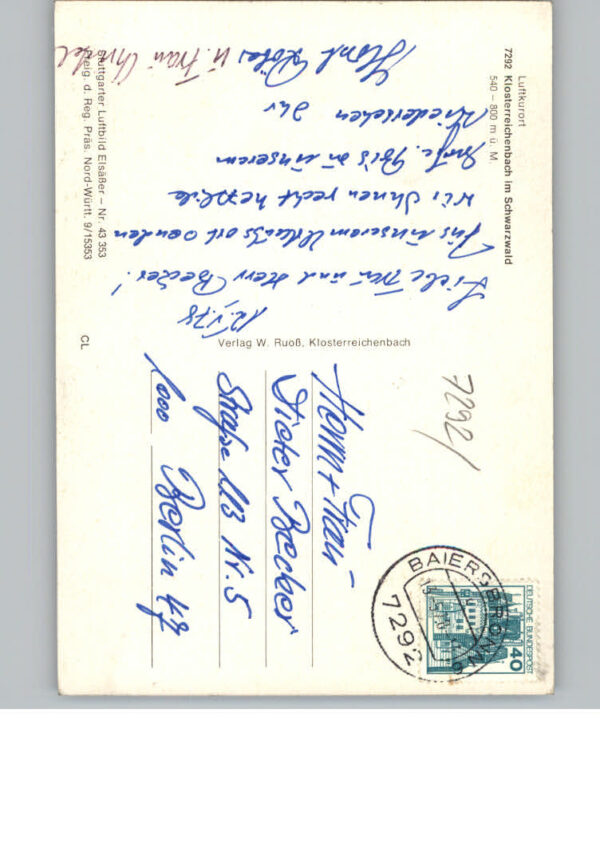 Luftkurort
7292 Klosterreichenbach im Schwarzwald
540 – 800 m ü. M.
12.5.78
Liebe Frau und Herr Becker!
Aus unserem Urlaubsort senden
wir Ihnen recht herzliche
Grüße. Bis zu unserem
Wiedersehen Ihr
Horst u. Frau Christel
Stuttgarter Luftbild Elsäßer – Nr. 43 353
Freig. d. Reg. Präs. Nord-Württ. 9/15353
CL
Verlag W. Ruoß, Klosterreichenbach
7292/
Herrn + Frau
Dieter Becker
Straße 413 Nr. 5
1000 Berlin 47
BAIERSBRONN
7292
DEUTSCHE BUNDESPOST
40